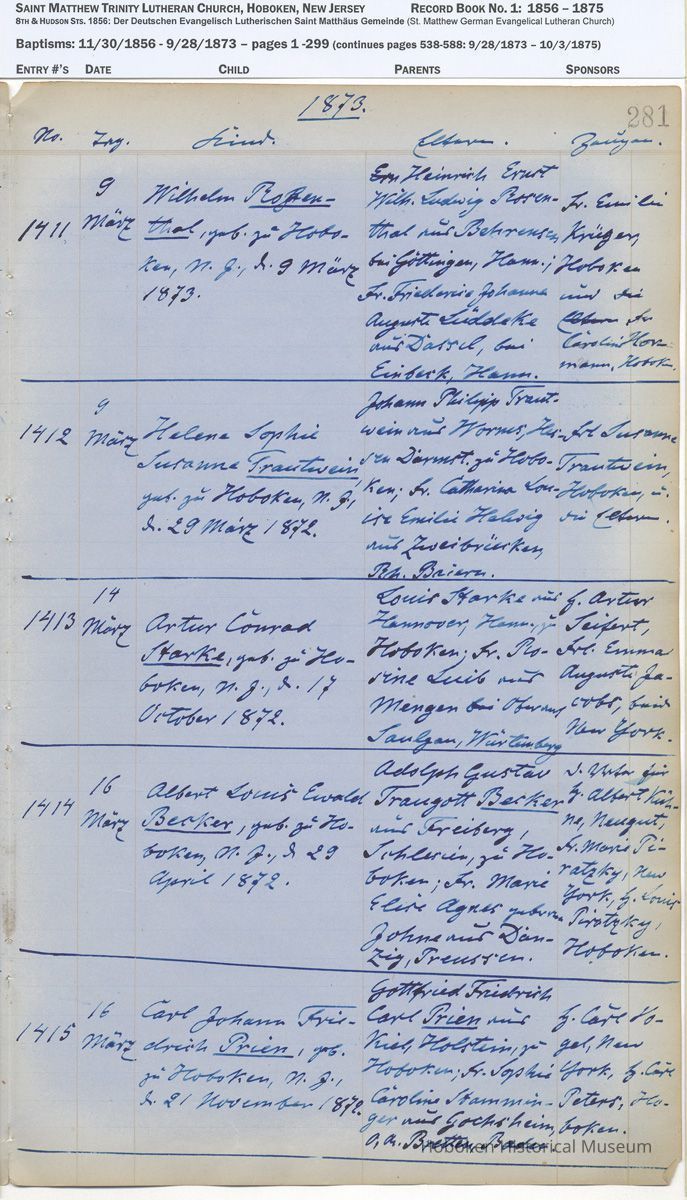 SAINT MATTHEW TRINITY LUTHERAN CHURCH, HOBOKEN, NEW JERSEY RECORD BOOK NO. 1: 1856 – 1875
8TH & HUDSON STS. 1856: Der Deutschen Evangelisch Lutherischen Saint Matthäus Gemeinde (St. Matthew German Evangelical Lutheran Church)
Baptisms: 11/30/1856 - 9/28/1873 – pages 1 -299 (continues pages 538-588: 9/28/1873 – 10/3/1875)
ENTRY #'S DATE CHILD PARENTS SPONSORS
1873.
281
No. Tag. Kind. Eltern. Zeugen.
1411
9
März
Wilhelm Rosen-
thal, geb. zu Hobo-
ken, N. J., d. 9 März
1873.
Heinrich Ernst
Wilh. Ludwig Rosen-
thal aus Behrensen,
bei Göttingen, Hann.;
Fr. Friederie Johanne
Auguste Lüddeke
aus Dassel, bei
Einbeck, Hann.
Fr. Emilie
Krüger,
Hoboken
und die
Eltern Fr.
Caroline Hor-
mann, Hobok.
1412
9
März
Helene Sophie
Susanne Trautwein,
geb. zu Hoboken, N. J.,
d. 29 März 1872.
Johann Philipp Traut-
wein aus Worms, Hes-
sen Darmst. zu Hobo-
ken; Fr. Catharina Lou-
ise Emilie Helwig
aus Zweibrücken,
Rh. Baiern.
Frl. Susanne
Trautwein,
Hoboken, u.
die Eltern.
1413
14
März
Artur Conrad
Starke, geb. zu Ho-
boken, N. J., d. 17
October 1872.
Louis Starke aus
Hannover, Hann., zu
Hoboken; Fr. Ro-
sine Luib aus
Mengen bei Oberamt
Saulgau, Würtemberg
H. Artur
Seifert,
Frl. Emma
Auguste Ja-
cobs, beide
New York.
1414
16
März
Albert Louis Ewald
Becker, geb. zu Ho-
boken, N. J., d. 29
April 1872.
Adolph Gustav
Traugott Becker
aus Freiberg,
Schlesien, zu Ho-
boken; Fr. Marie
Elise Agnes geborne
Johne aus Dan-
zig, Preussen.
d. Vater für
H. Albert Küh-
ne,
Fr. Marie Pi-
ratzky, New
York, H. Louis
Piratzky,
Hoboken.
1415
16
März
Carl Johann Frie-
drich Prien, geb.
zu Hoboken, N. J.,
d. 21 November 1872.
Gottfried Friedrich
Carl Prien aus
Kiel, Holstein, zu
Hoboken; Fr. Sophie
Caroline Stammin-
ger aus Gochsheim,
O. A. Bretten, Baden
H. Carl Ho-
gel, New
York, H. Carl
Peters, Ho-
boken.
Hoboken Historical Museum